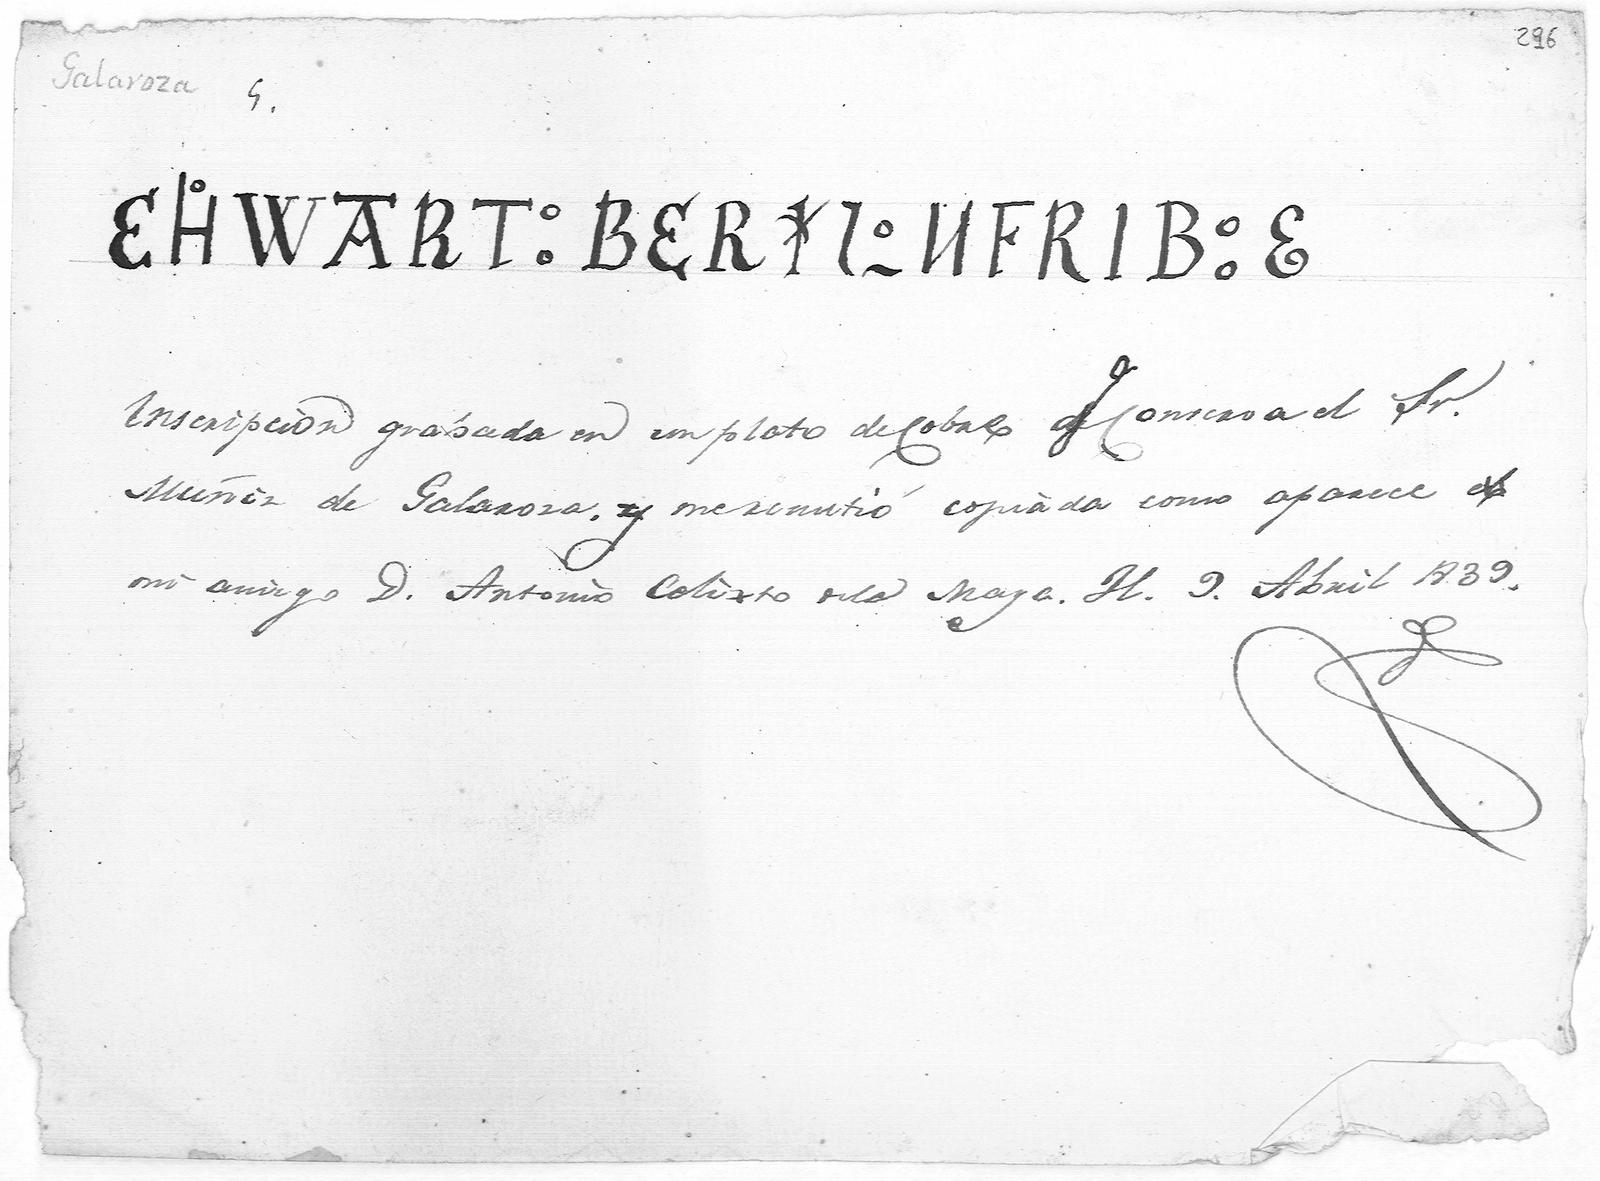 296
Galaroza 4.
EHWART: BER
NFRIB: E
Inscripcion grabada en un plato de Cobre q Conserva el Sr.
Muñiz de Galaroza, y me remitió copiada como aparece
mi amigo D. Antonio Calixto dela Maya. H. 9. Abril 1839.